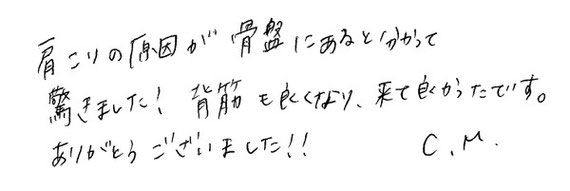 肩こりの原因が骨盤にあると分かって
驚きました! 背筋も良くなり、来て良かったです。
ありがとうございました!! C.M.